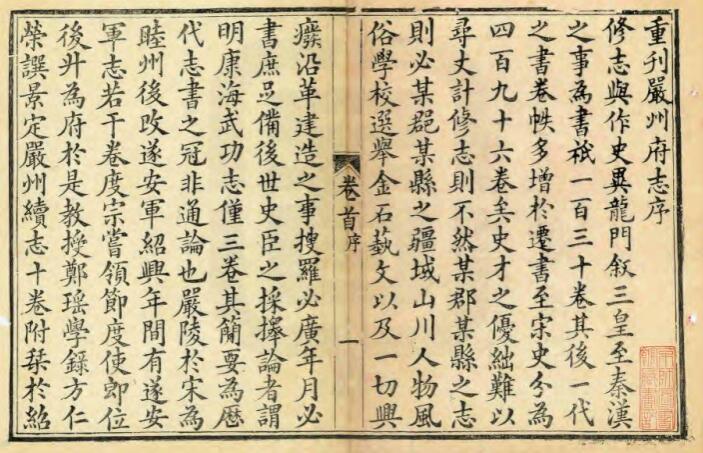 重刊嚴州府志序
修志與作史異龍門叙三皇至秦漢
之事為書祇一百三十卷其後一代
之書卷帙多增於遷書至宋史分為
四百九十六卷矣史才之優絀難以
尋丈計修志則不然某郡某縣之志
則必某郡某縣之疆域山川人物風
俗學校選舉金石藝文以及一切興
卷首 序
一
癈沿革建造之事搜羅必廣年月必
書庶足備後世史臣之採擇論者謂
明康海武功志僅三卷其簡要為歷
代志書之冠非通論也嚴陵於宋為
睦州後改遂安軍紹興年間有遂安
軍志若干卷度宗嘗領節度使卽位
後升為府於是教授鄭瑤學錄方仁
榮譔景定嚴州續志十卷附琹於紹